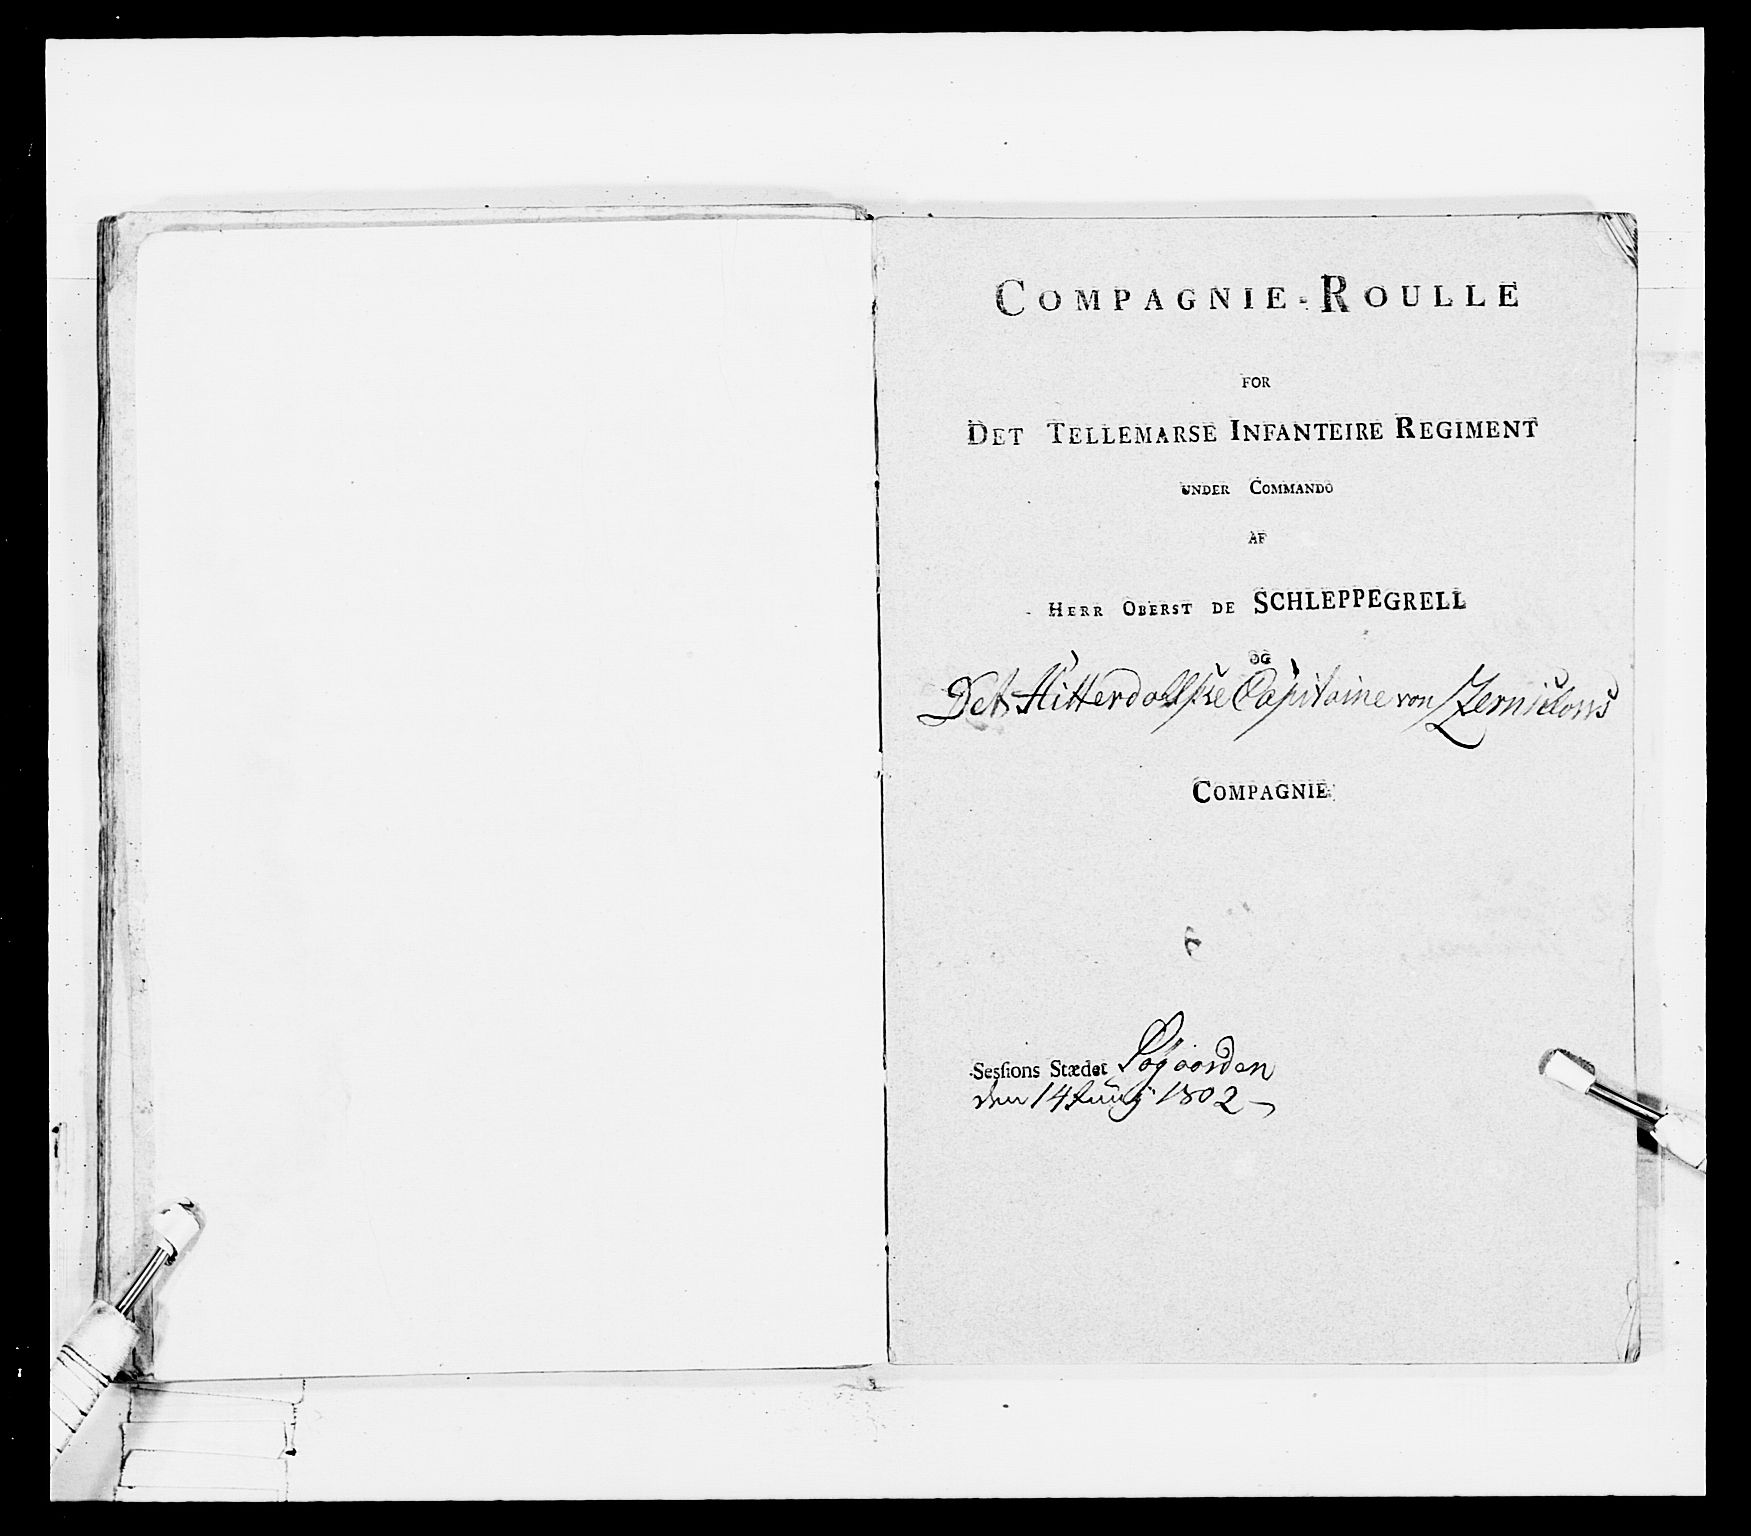 COMPAGNIE-ROULLE
FOR
DET TELLEMARSE INFANTEIRE REGIMENT
UNDER COMMANDO
AF
HERR OBERST DE SCHLEPPEGRELL
OG
Det Hitterdalske Capitaine von Zernichows
COMPAGNIE
Sesſions Stædet Søgaarden
den 14 Junij 1802